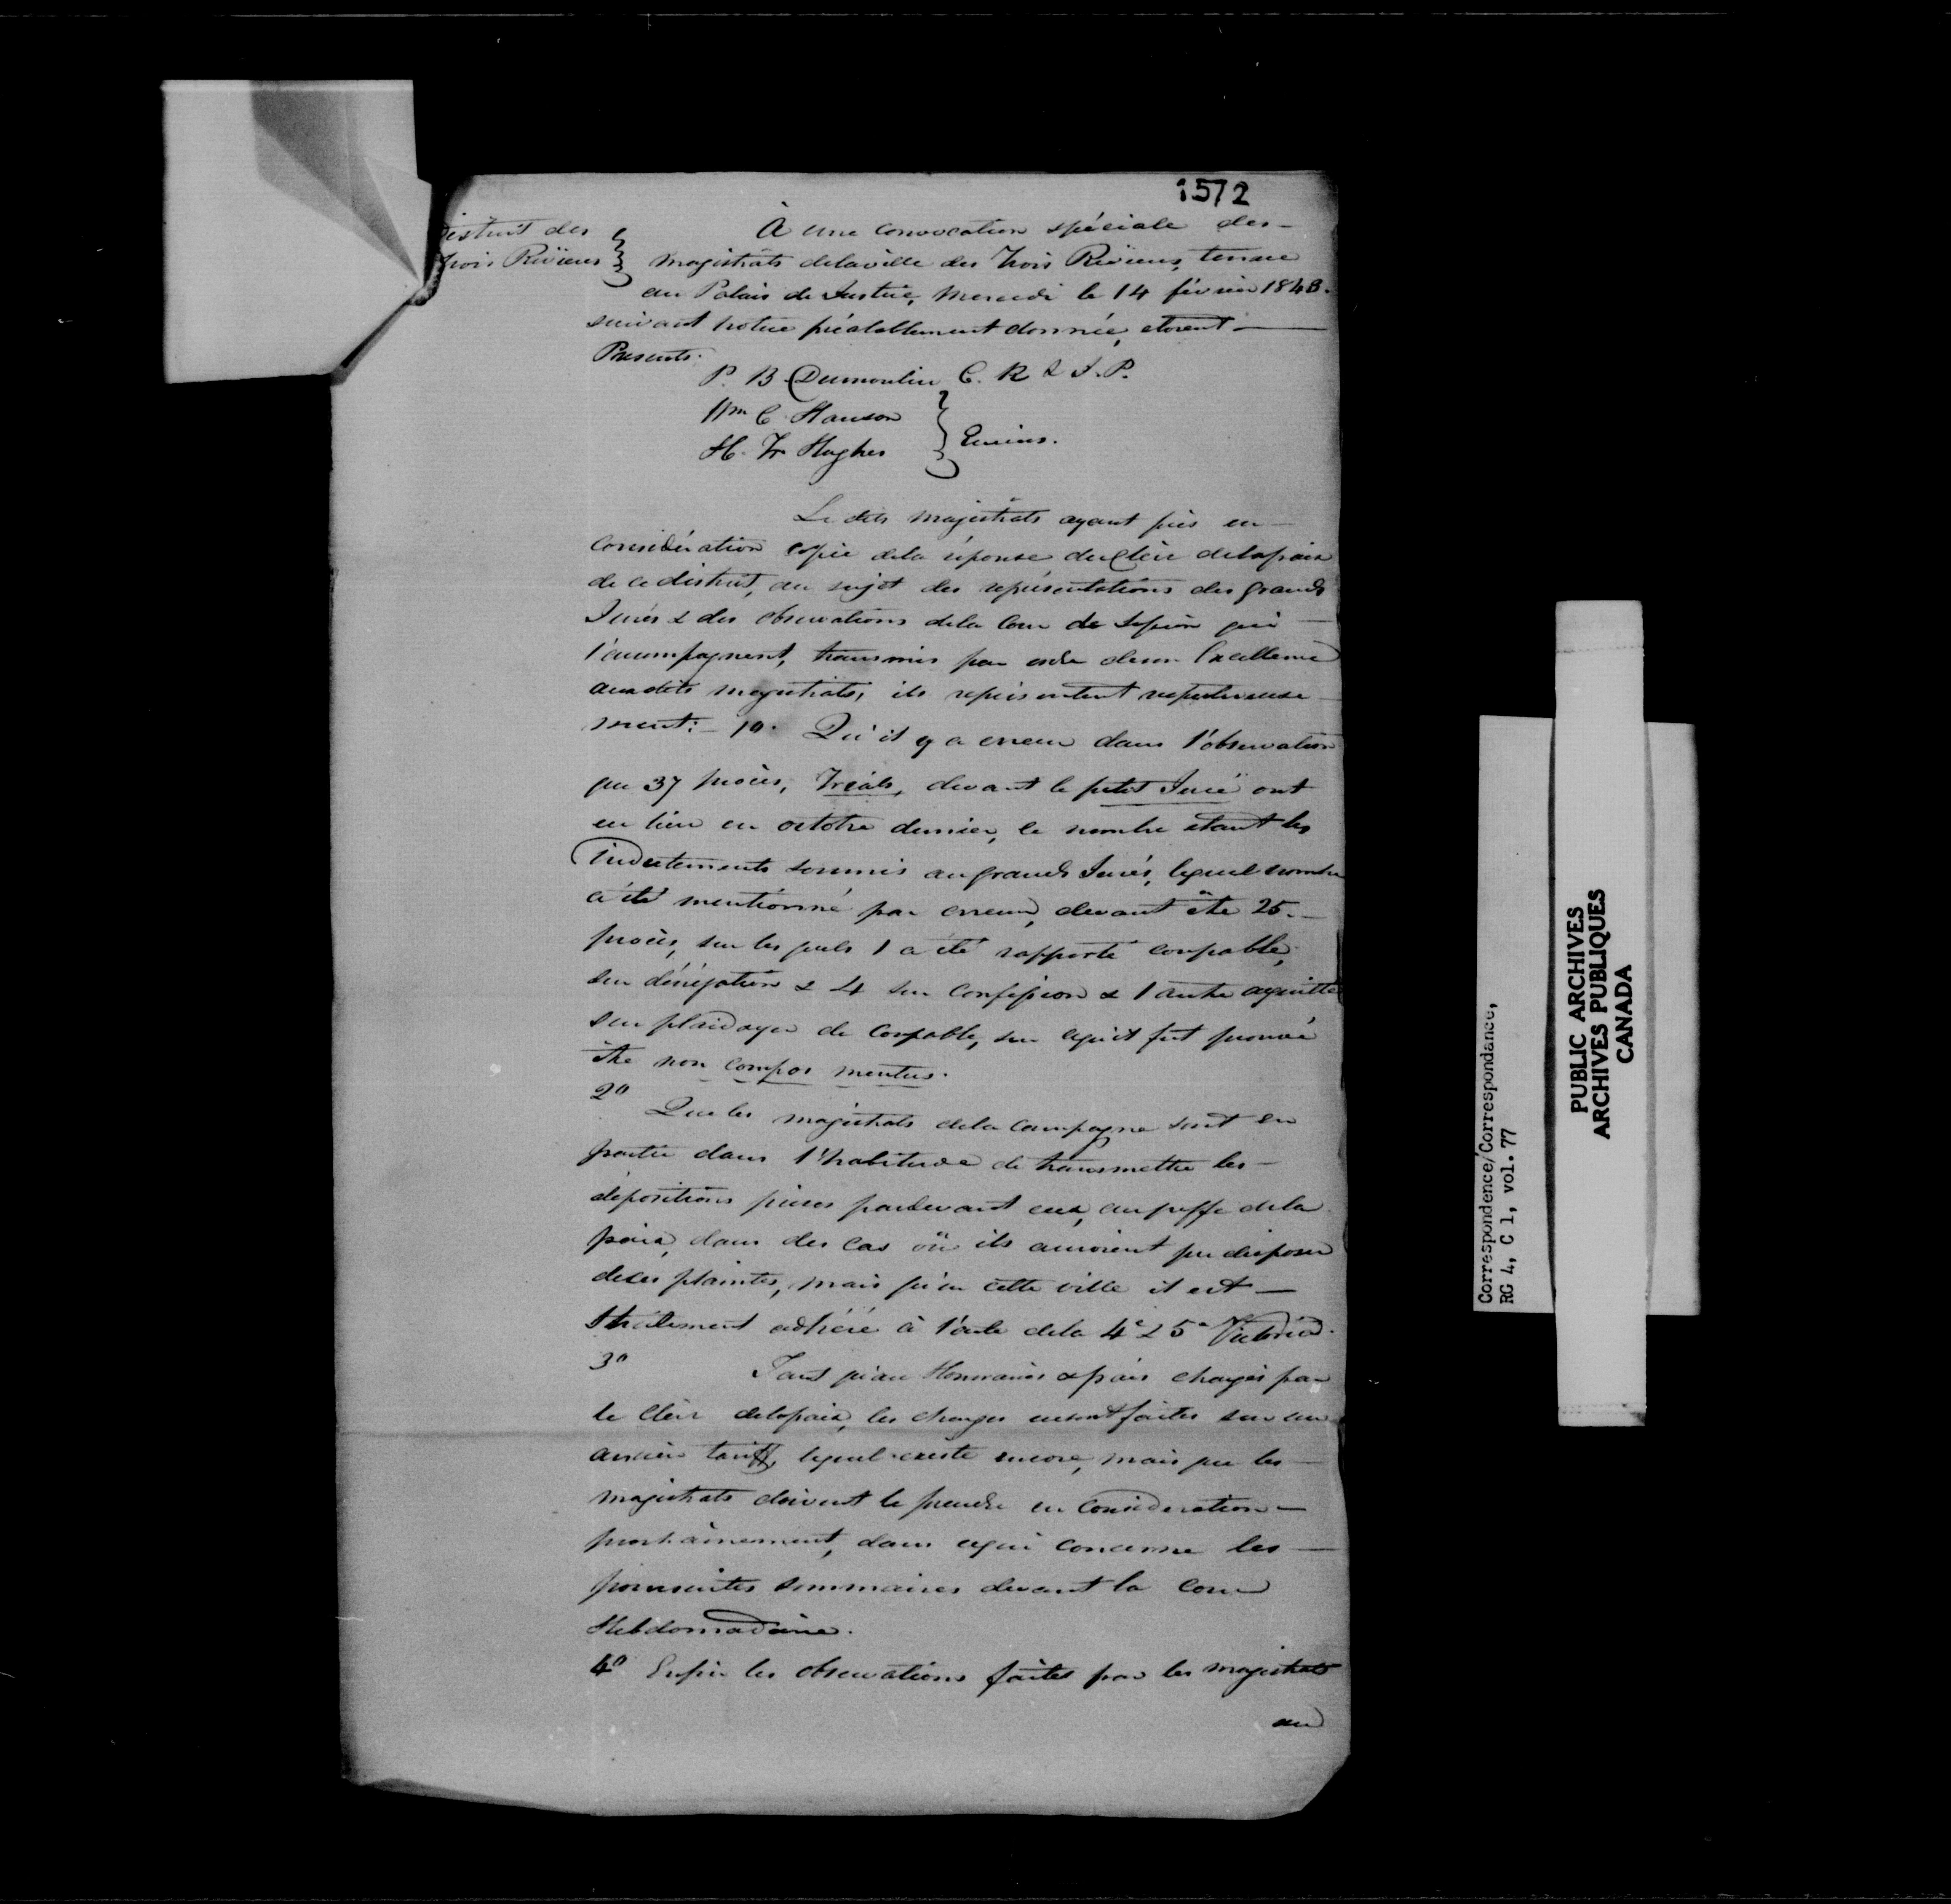 1572
District des
Trois Rivières
À une convocation spéciale des
magistrats de la ville des Trois Rivières, tenue
au Palais de Justice, Mercredi le 14 février 1843.
suivant notice préalablement donnée, étoient
Présents.
P. B. Dumoulin C. R & J. P.
Wm C. Hanson
H. Fr Hughes
Ecuiers.
Le dits magistrats ayant pris en
considération copie de la réponse du Clerc de la paix
de ce district, au sujet des représentations des grands
Jurés & des observations de la Cour de Session qui
l'accompagnent, transmis par ordre de son Excellence
aux dits magistrats, ils représentent respectueuse
ment:- 1o. Qu'il y a erreur dans l'observation
que 37 procès, Trials, devant le petit Juré ont
eu lieu en octobre dernier, le nombre étant les
Indictements soumis au grands Jurés, lequel nombre
a été mentionné par erreur, devant être 25.
procès, sur les quels 1 a été rapporté coupable,
sur dénégation & 4 sur confession & 1 autre acquitté
sur plaidoyer de Coupable, sur ce qu'il fut prouvé
être non compos mentus.
2o Que les magistrats de la campagne sont en
partie dans l'habitude de transmettre les
dépositions prises pardevant eux, au greffe de la
paix, dans des cas où ils auroient pu disposer
de ces plaintes, mais qu'en cette ville il est
strictement adhéré à l'acte de la 4e & 5e Victoria.
3o Tant qu'au Honoraires & frais chargés par
le Clerc de la paix, les charges en sont faites sur un
ancien tariff, lequel existe encore, mais que les
magistrats doivent le prendre en Considération
prochainement, dans ce qui concerne les
poursuites sommaires devant la Cour
Hebdomadaire.
4o Enfin les observations faites par les magistrats
au
Correspondence/Correspondance,
RG 4, C 1, vol. 77
PUBLIC ARCHIVES
ARCHIVES PUBLIQUES
CANADA